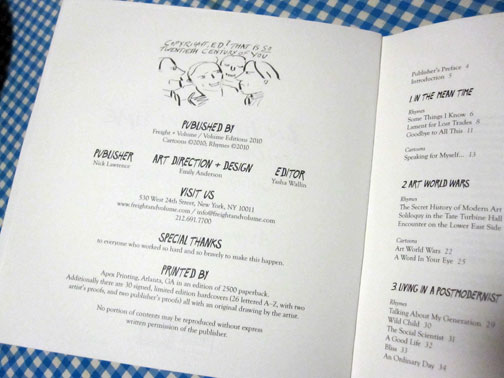 COPYRIGHT, ED? THAT IS SO
TWENTIETH CENTURY OF YOU
PUBLISHED BY
Freight + Volume / Volume Editions 2010
Cartoons ©2010, Rhymes ©2010
PUBLISHER
Nick Lawrence
ART DIRECTION + DESIGN
Emily Anderson
EDITOR
Yasha Wallin
VISIT US
530 West 24th Street, New York, NY 10011
www.freightandvolume.com / info@freightandvolume.com
212.691.7700
SPECIAL THANKS
to everyone who worked so hard and so bravely to make this happen.
PRINTED BY
Apex Printing, Atlanta, GA in an edition of 2500 paperback.
Additionally there are 30 signed, limited edition hardcovers (26 lettered A-Z, with two
artist's proofs, and two publisher's proofs) all with an original drawing by the artist.
No portion of contents may be reproduced without express
written permission of the publisher.
Publisher's Preface 4
Introduction 5
1 IN THE MEAN TIME
Rhymes
Some Things I Know 6
Lament for Lost Trades 8
Goodbye to All This 11
Cartoons
Speaking for Myself... 13
2 ART WORLD WARS
Rhymes
The Secret History of Modern Art
Soliloquy in the Tate Turbine Hall
Encounter on the Lower East Side
Cartoons
Art World Wars 22
A Word In Your Eye 25
3 LIVING IN A POSTMODERNIST
Rhymes
Talking About My Generation 29
Wild Child 30
The Social Scientist 31
A Good Life 32
Bliss 33
An Ordinary Day 34